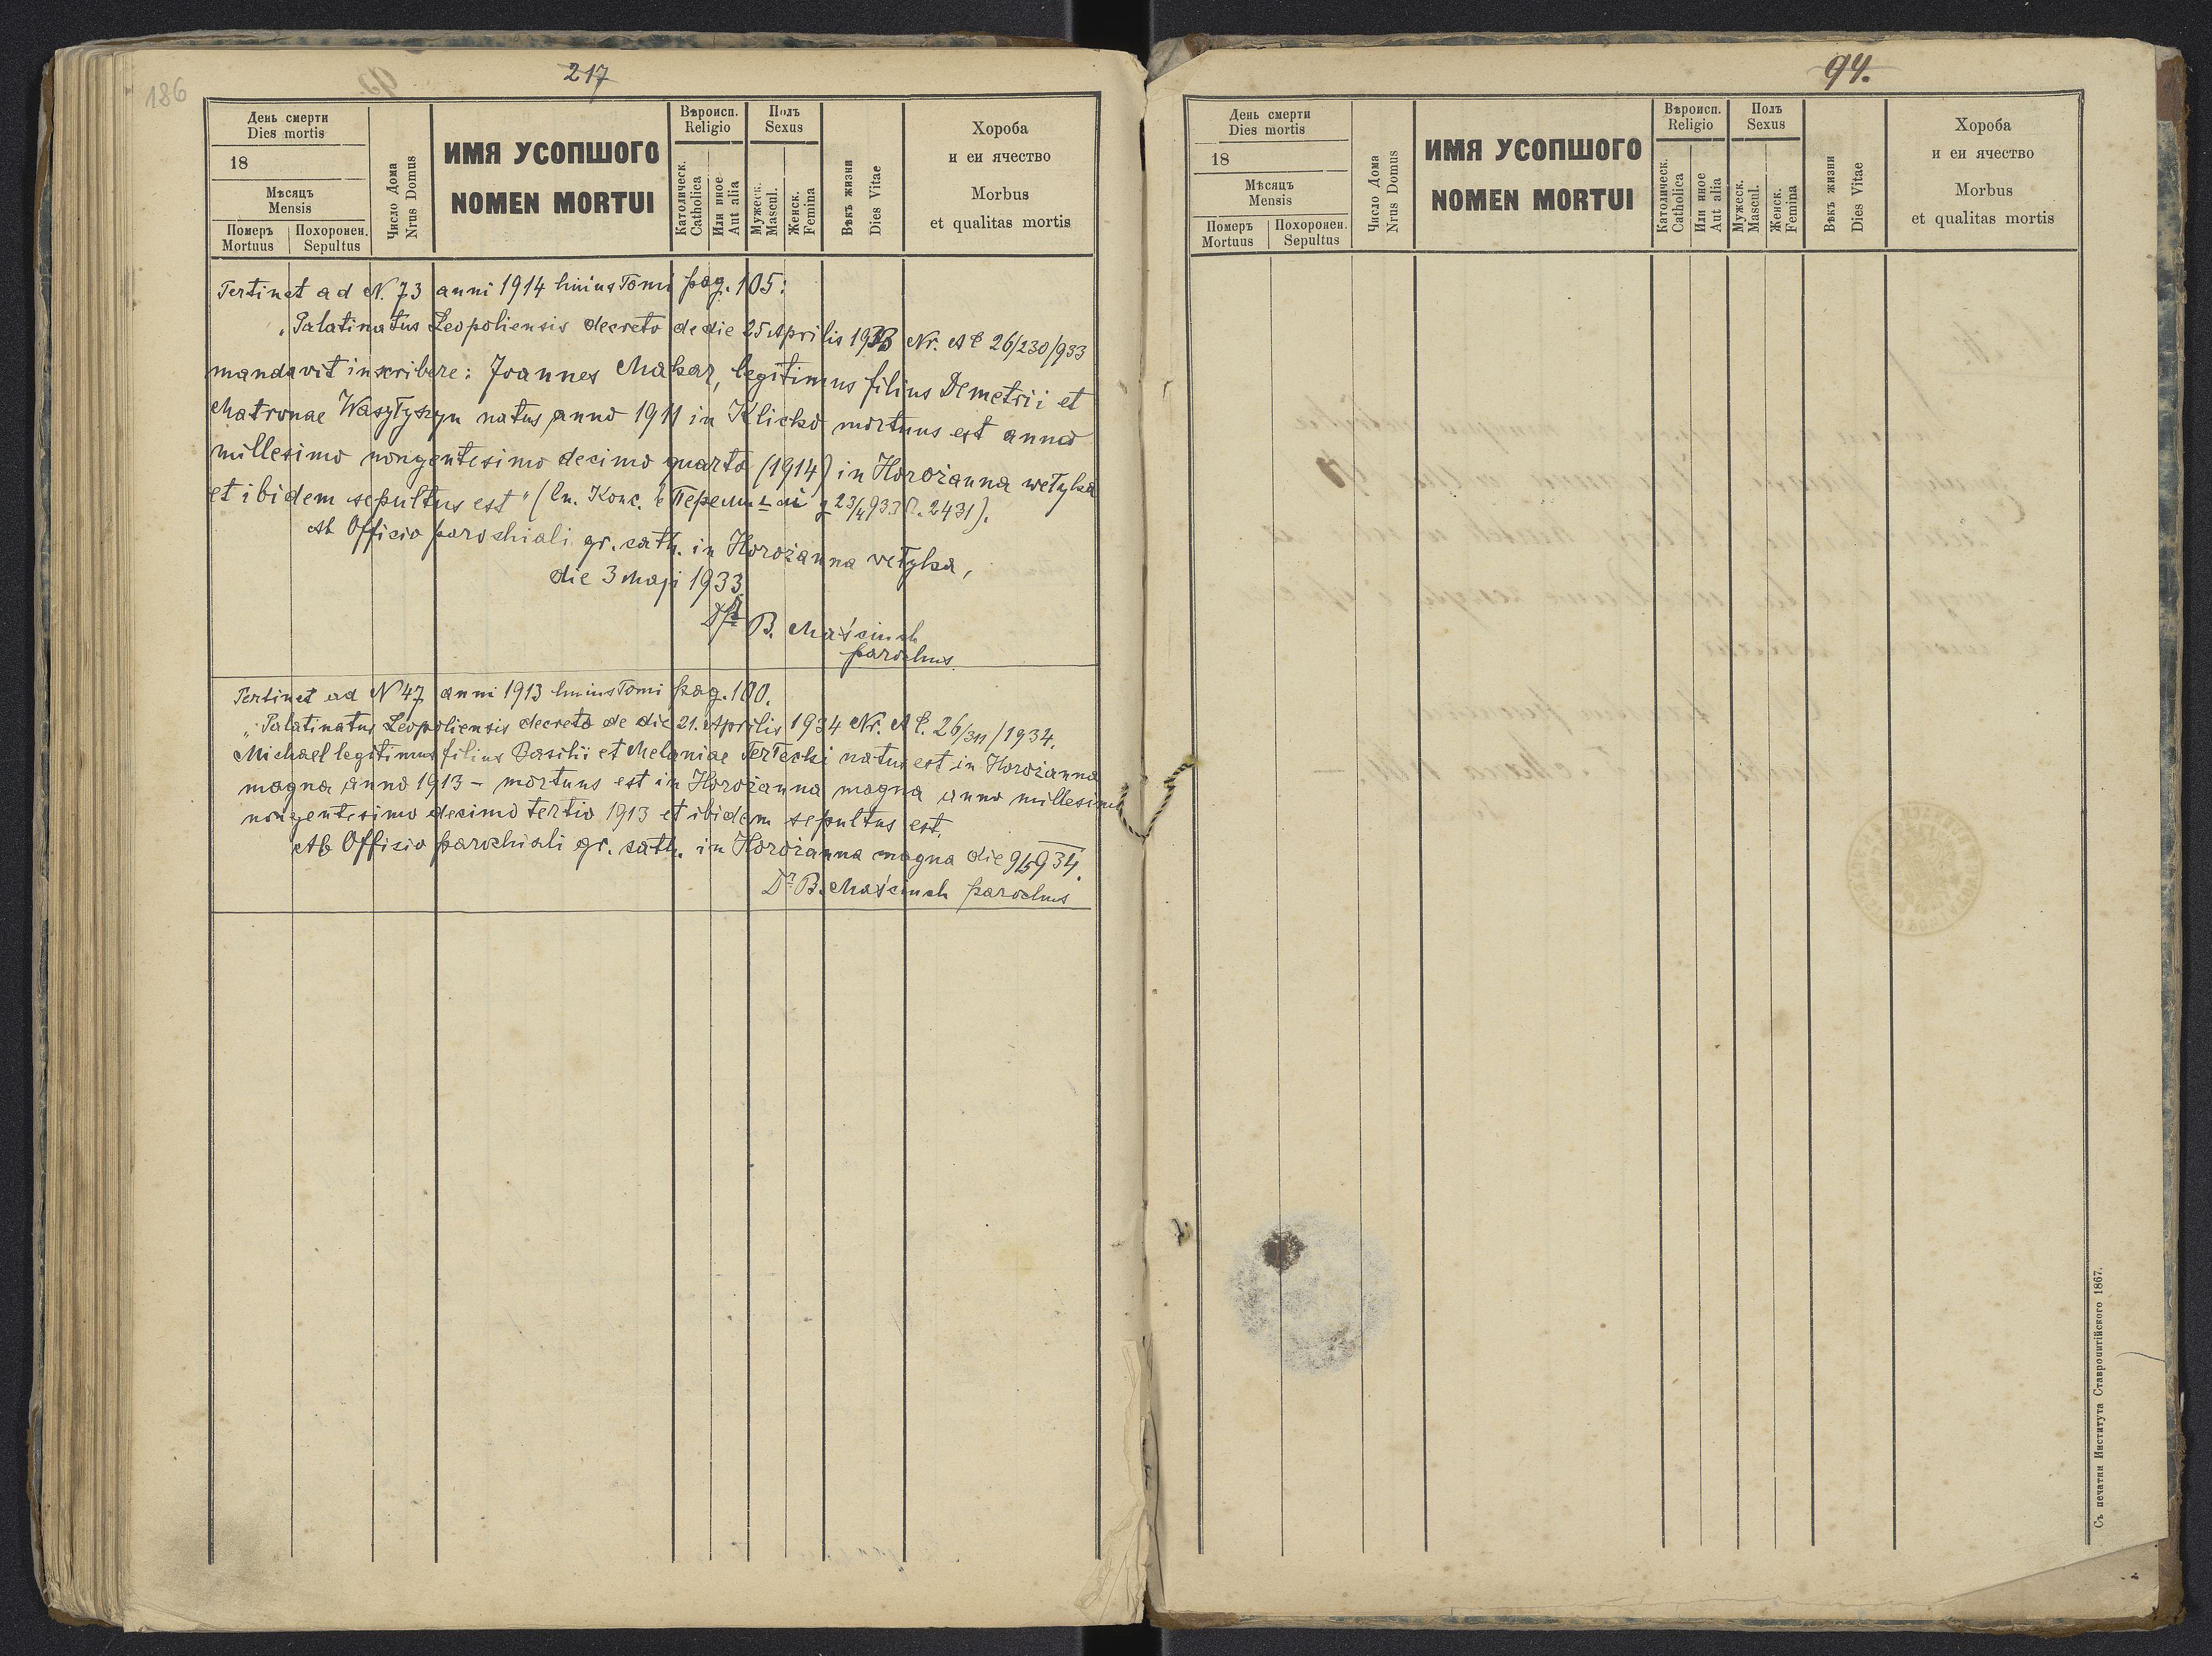 186
217
День смерти
Dies mortis
18
Мѣсяцъ
Mensis
Померъ
Mortuus
Похоронен.
Sepultus
Число Дома
Nrus Domus
ИМЯ УСОПШОГО
NOMEN MORTUI
Вѣроисп.
Religio
Католическ.
Catholica
Или иное
Aut alia
Полъ
Sexus
Мужеск.
Mascul.
Женск.
Femina
Вѣкъ жизни
Dies Vitae
Хороба
и еи ячество
Morbus
et qualitas mortis
Pertinet ad N. 73 anni 1914 huius Tomi pag. 105:
"Palatinatus Leopoliensis decreto de die 25 Aprilis 1933 Nr. A C 26/230/933
mandavit inscribere: Joannes Makar, legitimus filius Demetrii et
Matronae Wasyłyszyn natus anno 1911 in Klicko mortuus est anno
millesimo nongentesimo decimo quarto (1914) in Horożanna wełyka
et ibidem sepultus est" (Еп. Конс. в 23/4 933 2431).
Ab Officio parochiali gr. cath. in Horożanna wełyka,
die 3 Maji 1933.
Dr B. Maściuch
parochus.
Pertinet ad N 47 anni 1913 huius Tomi pag. 100.
"Palatinatus Leopoliensis decreto de die 21. Aprilis 1934 Nr. A C. 26/311/1934.
Michael legitimus filius Basilii et Melaniae Terlecki natus est in Horożanna
magna anno 1913 – mortuus est in Horożanna magna anno millesimo
nongentesimo decimo tertio 1913 et ibidem sepultus est.
Ab Officio parochiali gr. cath. in Horożanna magna die 9/5 934.
Dr B. Maściuch parochus
94.
День смерти
Dies mortis
18
Мѣсяцъ
Mensis
Померъ
Mortuus
Похоронен.
Sepultus
Число Дома
Nrus Domus
ИМЯ УСОПШОГО
NOMEN MORTUI
Вѣроисп.
Religio
Католическ.
Catholica
Или иное
Aut alia
Полъ
Sexus
Мужеск.
Mascul.
Женск.
Femina
Вѣкъ жизни
Dies Vitae
Хороба
и еи ячество
Morbus
et qualitas mortis
Съ печатни Института Ставропигійского 1867.